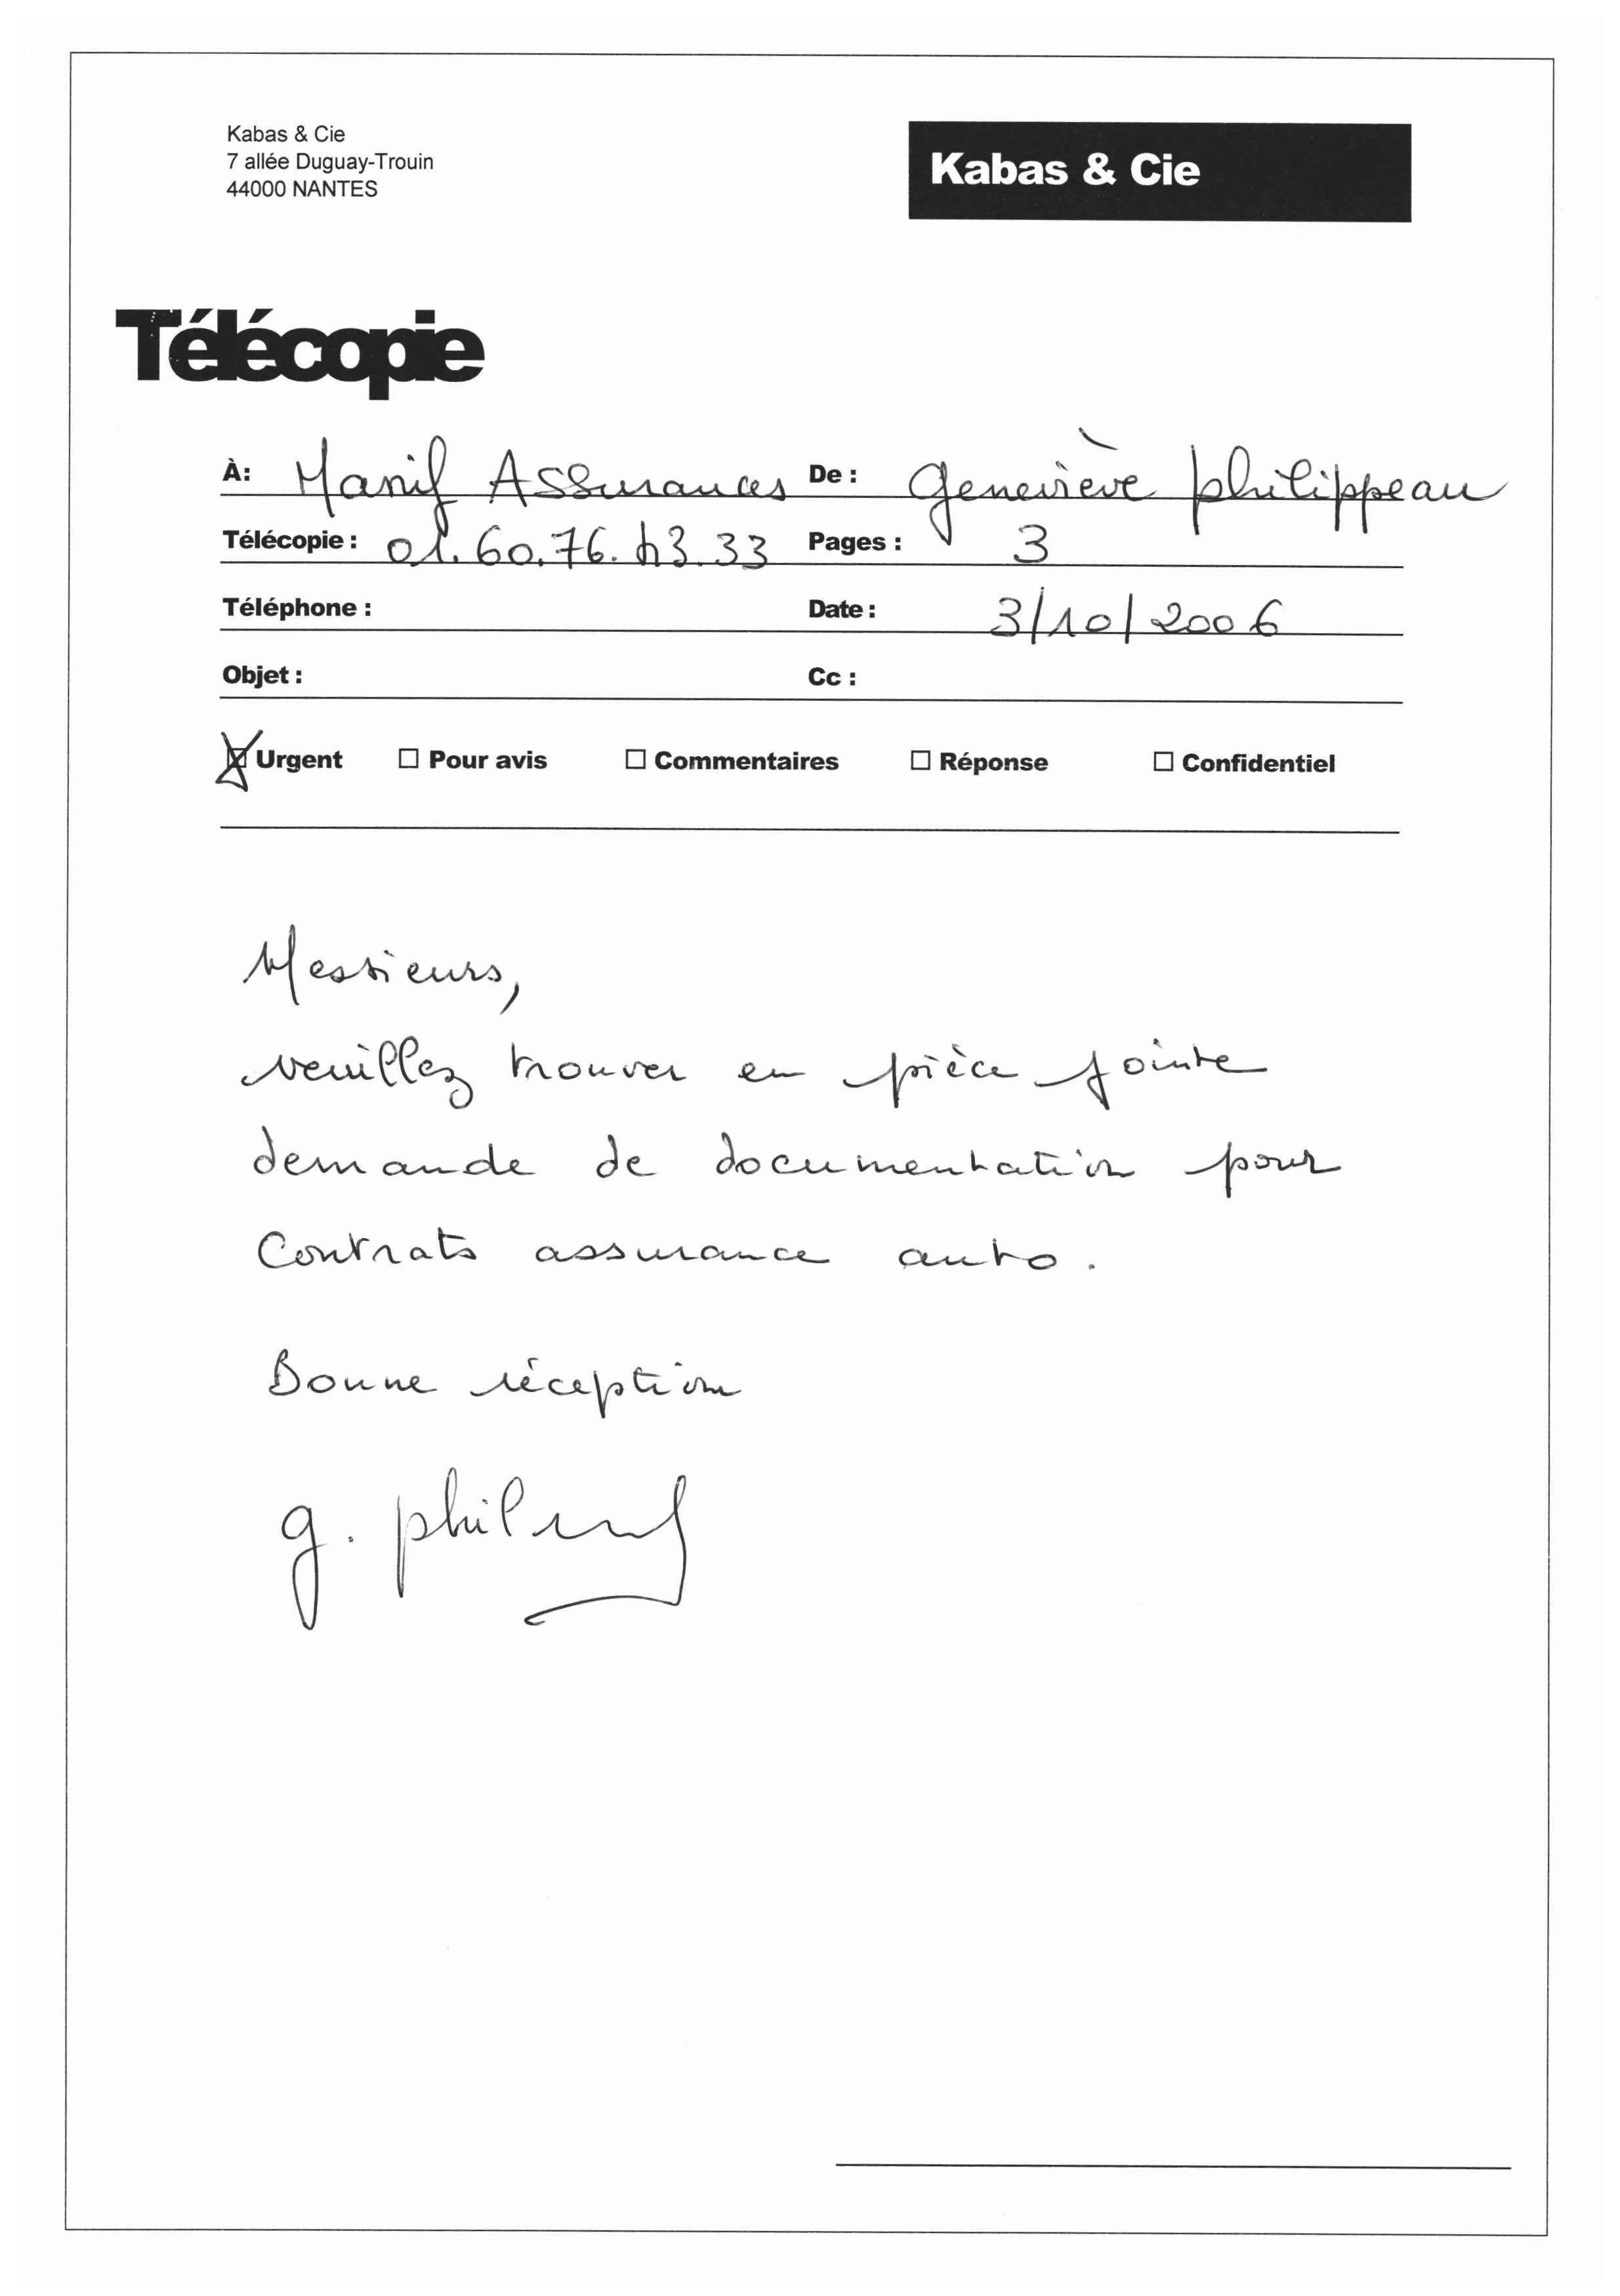 Kabas & Cie
7 allée Duguay-Trouin
44000 NANTES
Kabas & Cie
Télécopie
À: Manif Assurances De : Geneviève philippeau
Télécopie : 01.60.76.43.33 Pages : 3
Téléphone : Date : 3/10/2006
Objet : Cc :
Urgent Pour avis Commentaires Réponse Confidentiel
Messieurs,
veuillez trouver en pièce jointe
demande de documentation pour
Contrats assurance auto.
Bonne réception
g.